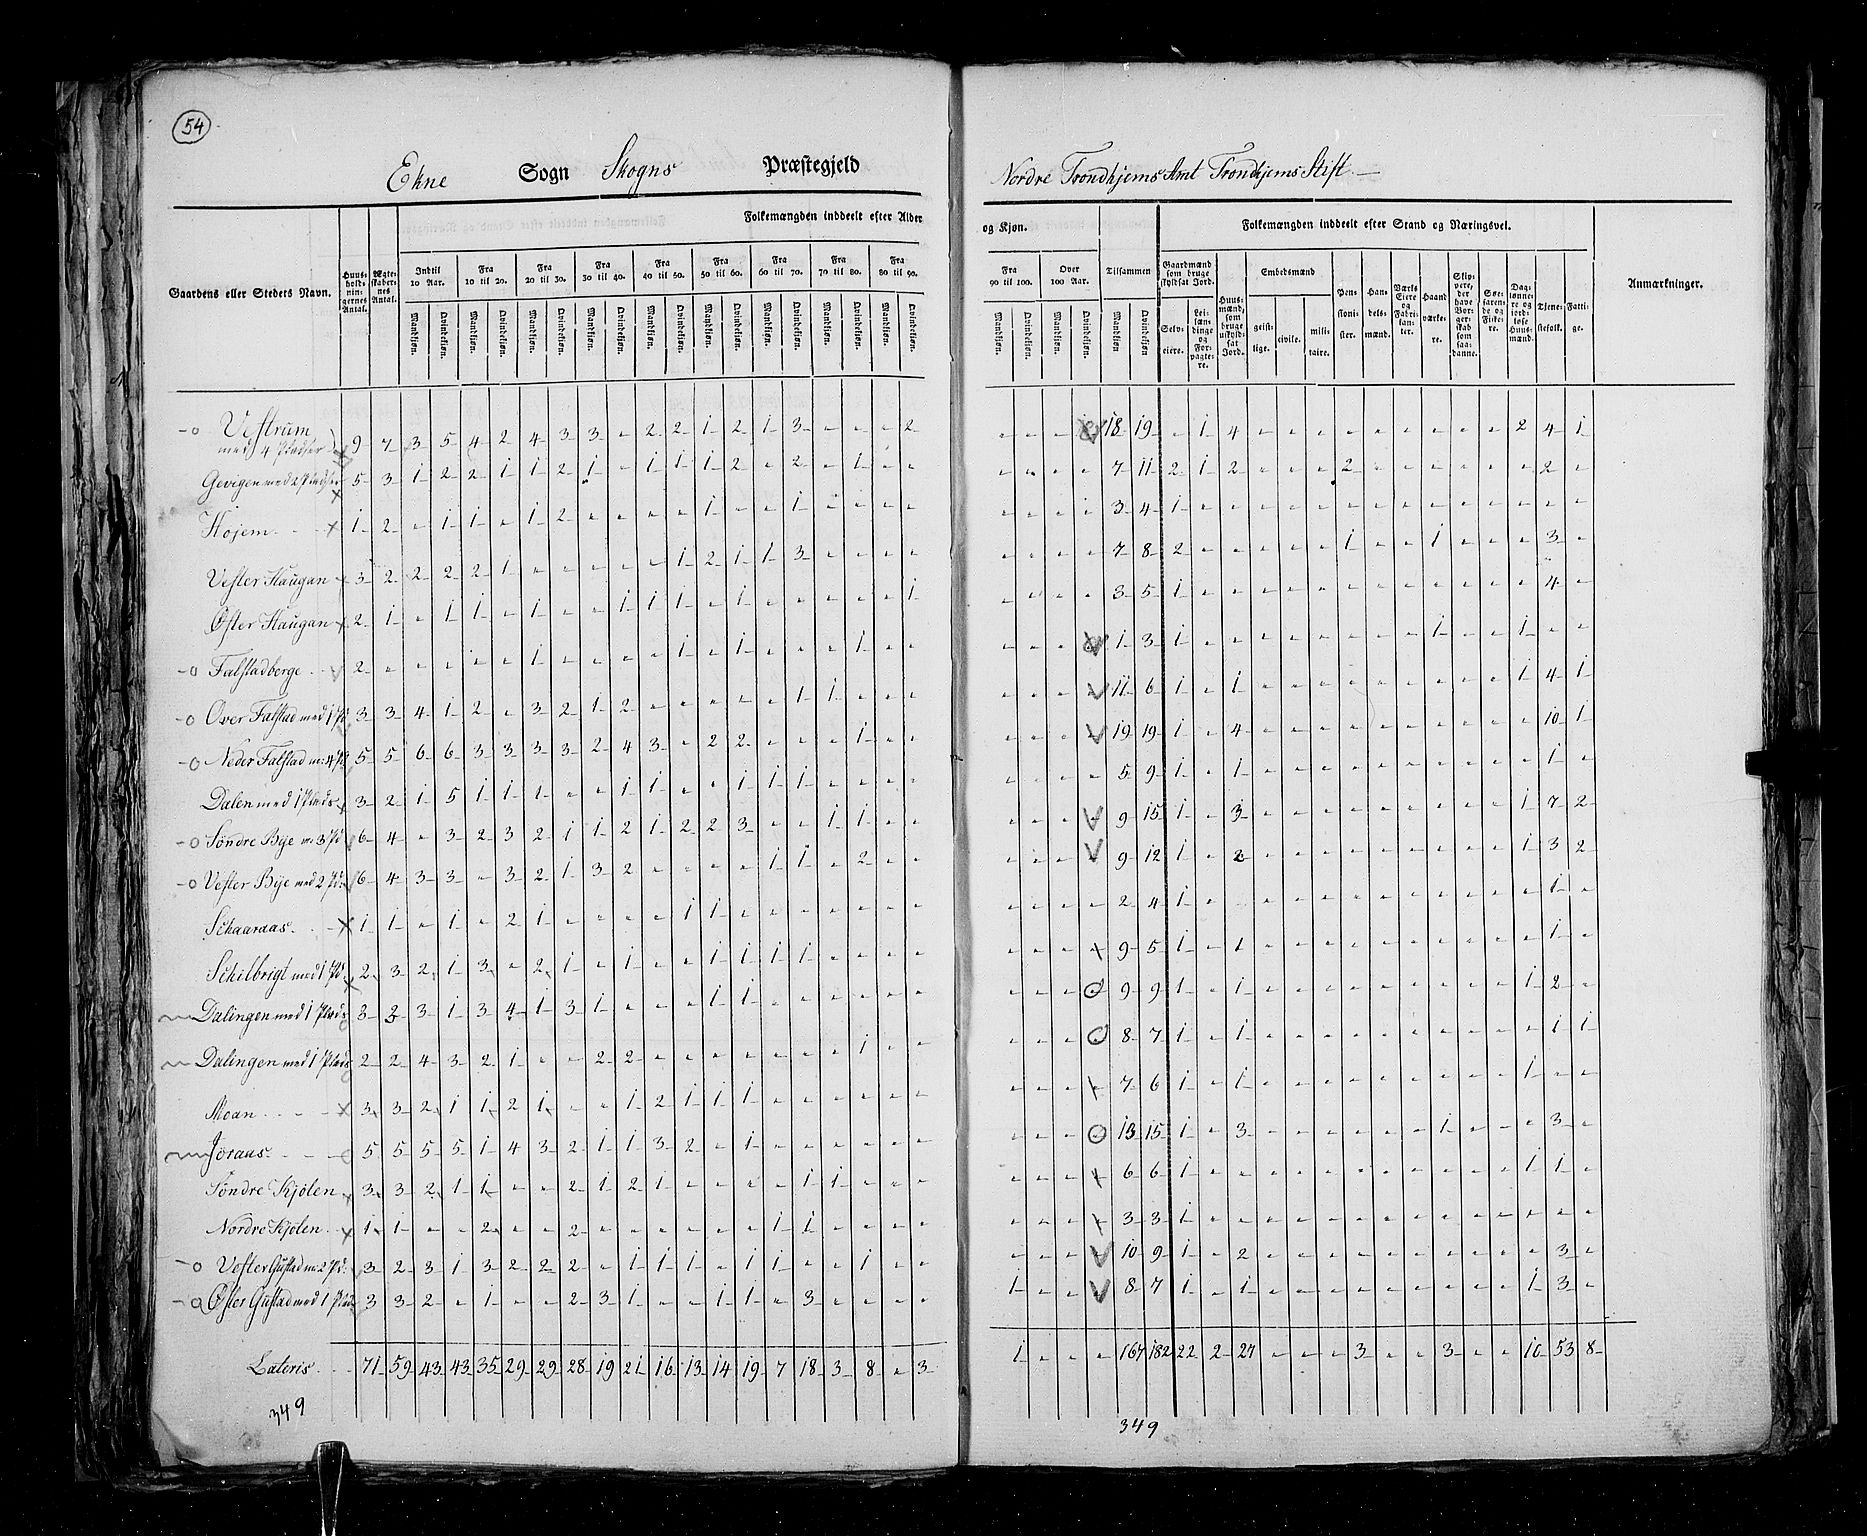 54
Ekne Sogn Skogns Præstegjeld
Nordre Trondhjems Amt Trondhjems Stift
Gaardens eller Stedets Navn.
Huus-holdnin-gernes Antal.
Ægte-skaber-nes Antal.
Folkemængden inddeelt efter Alder
Indtil 10 Aar.
Fra 10 til 20.
Fra 20 til 30.
Fra 30 til 40.
Fra 40 til 50.
Fra 50 til 60.
Fra 60 til 70.
Fra 70 til 80.
Fra 80 til 90.
Mandkjøn. Qvindekjøn. Mandkjøn. Qvindekjøn. Mandkjøn. Qvindekjøn. Mandkjøn. Qvindekjøn. Mandkjøn. Qvindekjøn. Mandkjøn. Qvindekjøn. Mandkjøn. Qvindekjøn. Mandkjøn. Qvindekjøn. Mandkjøn. Qvindekjøn.
og Kjøn.
Fra 90 til 100.
Over 100 Aar.
Tilsammen
Mandkjøn. Qvindekjøn. Mandkjøn. Qvindekjøn. Mandkjøn Qvindekjøn
Folkemængden inddeelt efter Stand og Næringsvei.
Gaardmænd som bruge skyldsat Jord.
Selv-eiere.
Lei-lændinge og For-pagte-re.
Huus-mænd, som bruge uskyld-sat Jord.
Embedsmænd
geist-lige.
civile.
mili-taire.
Pen-sioni-ster.
Han-dels-mænd.
Værks Eiere og Fabri-kan-ter.
Haand-værke-re.
Skip-pere, der have Bor-ger-skab som saa-danne.
Søe-faren-de og Fiske-re.
Dag-lønne-re og jord-løse Huus-mænd.
Tjene-stefolk.
Fatti-ge.
Anmærkninger.
Vestrum
med 4 Pladser 9 7 3 5 4 2 4 3 3 - 2 2 1 2 1 3 - - - 2 - - - - 18 19 - 1 4 - - - - - - - - - 2 4 1
Gevigen med 2 Pladser 5 3 1 2 2 1 1 2 1 - 1 1 1 2 - 2 - 1 - - - - - - 7 11 2 1 2 - - - 2 - - - - - - 2 -
Hojem 1 2 - 1 1 - 1 2 - - - - 1 - - 1 - - - - - - - - 3 4 1 - - - - - - - - - - - - - -
Vester Haugan 3 2 2 2 2 1 - - - - - 1 2 1 1 3 - - - - - - - - 7 8 2 - - - - - 1 - - 1 - - - 3 -
Øster Haugan 2 1 - 1 1 - 1 - - 1 1 1 - 1 - - - - - 1 - - - - 3 5 1 - - - - - - - - - - - - 4 -
Falstadberge 2 - - - - - 1 - - - - 1 - 1 - - - 1 - - - - - - 1 3 1 - - - - - - - - 1 - - 1 - -
Over Falstad med 1 Pl 3 3 4 1 2 - 3 2 1 2 - - - - - 1 1 - - - - - - - 11 6 1 - 1 - - - - - - - - - 1 4 1
Neder Falstad m: 4 Pl 5 5 6 6 3 3 3 3 2 4 3 - 2 2 - - - 1 - - - - - - 19 19 1 - 4 - - - - - - - - - - 10 1
Dalen med 1 Plads 3 2 1 5 1 1 1 - - 1 1 - - 1 1 1 - - - - - - - - 5 9 1 - 1 - - - - - - - - - - 1 -
Søndre Bye m 3 Pl 6 4 - 3 2 3 2 1 1 2 1 2 2 3 - - 1 1 - - - - - - 9 15 1 - 3 - - - - - - - - - 1 7 2
Vester Bye med 2 Pl: 6 4 3 3 - 3 2 1 3 2 - - - - 1 1 - 2 - - - - - - 9 12 1 - 2 - - - - - - - - - 1 3 2
Schaaraas 1 1 - 1 - 2 1 - - - - 1 1 - - - - - - - - - - - 2 4 1 - - - - - - - - - - - - 1 -
Schilbrigt med 1 Pl 2 3 2 1 3 - 2 1 - 1 - - 1 1 1 1 - - - - - - - 9 5 1 - 1 - - - - - - - - - - 1 -
Dalingen med 1 Plads 3 2 3 1 3 4 1 3 1 - - - 1 1 - - - - - - - - - 9 9 1 - 1 - - - - - - - - - 1 2 -
Dalingen med 1 Plads 2 2 4 3 2 1 - - 2 2 - - - - - - - 1 - - - - - 8 7 1 - 1 - - - - - - - - - - 1 1
Moan 3 3 2 1 1 2 1 - - 1 2 1 1 1 - - - - - - - - - 7 6 1 - 1 - - - - - - - - - 1 - -
Joraas 5 5 5 5 1 4 3 2 1 1 3 2 - 1 - - - - - - - - - 13 15 1 - 3 - - - - - - 1 - - - 3 -
Søndre Kjølen 3 3 2 1 1 - - 2 1 2 1 - - - - 1 1 - - - - - - 6 6 1 - - - - - - - - - - - 1 1 -
Nordre Kjølen 1 1 - - 2 - - 2 - - - - - - 1 1 - - - - - - - 3 3 1 - - - - - - - - - - - - - -
Vester Gustad m 2 Pl: 3 2 3 1 3 2 2 2 - 1 1 1 - 1 1 - - 1 - - - - - - 10 9 1 - 2 - - - - - - - - - - 3 -
Øster Gustad med 1 Plads 3 3 2 - 1 - - 2 3 1 - - 1 1 - 3 - - - - 1 - - - 8 7 1 - 1 - - - - - - - - - 1 3 -
Lateris 71 59 43 43 35 29 29 28 19 21 16 13 14 19 7 18 3 8 - 3 1 - - - 167 182 22 2 27 - - - 3 - - 3 - - 10 53 8
349
349